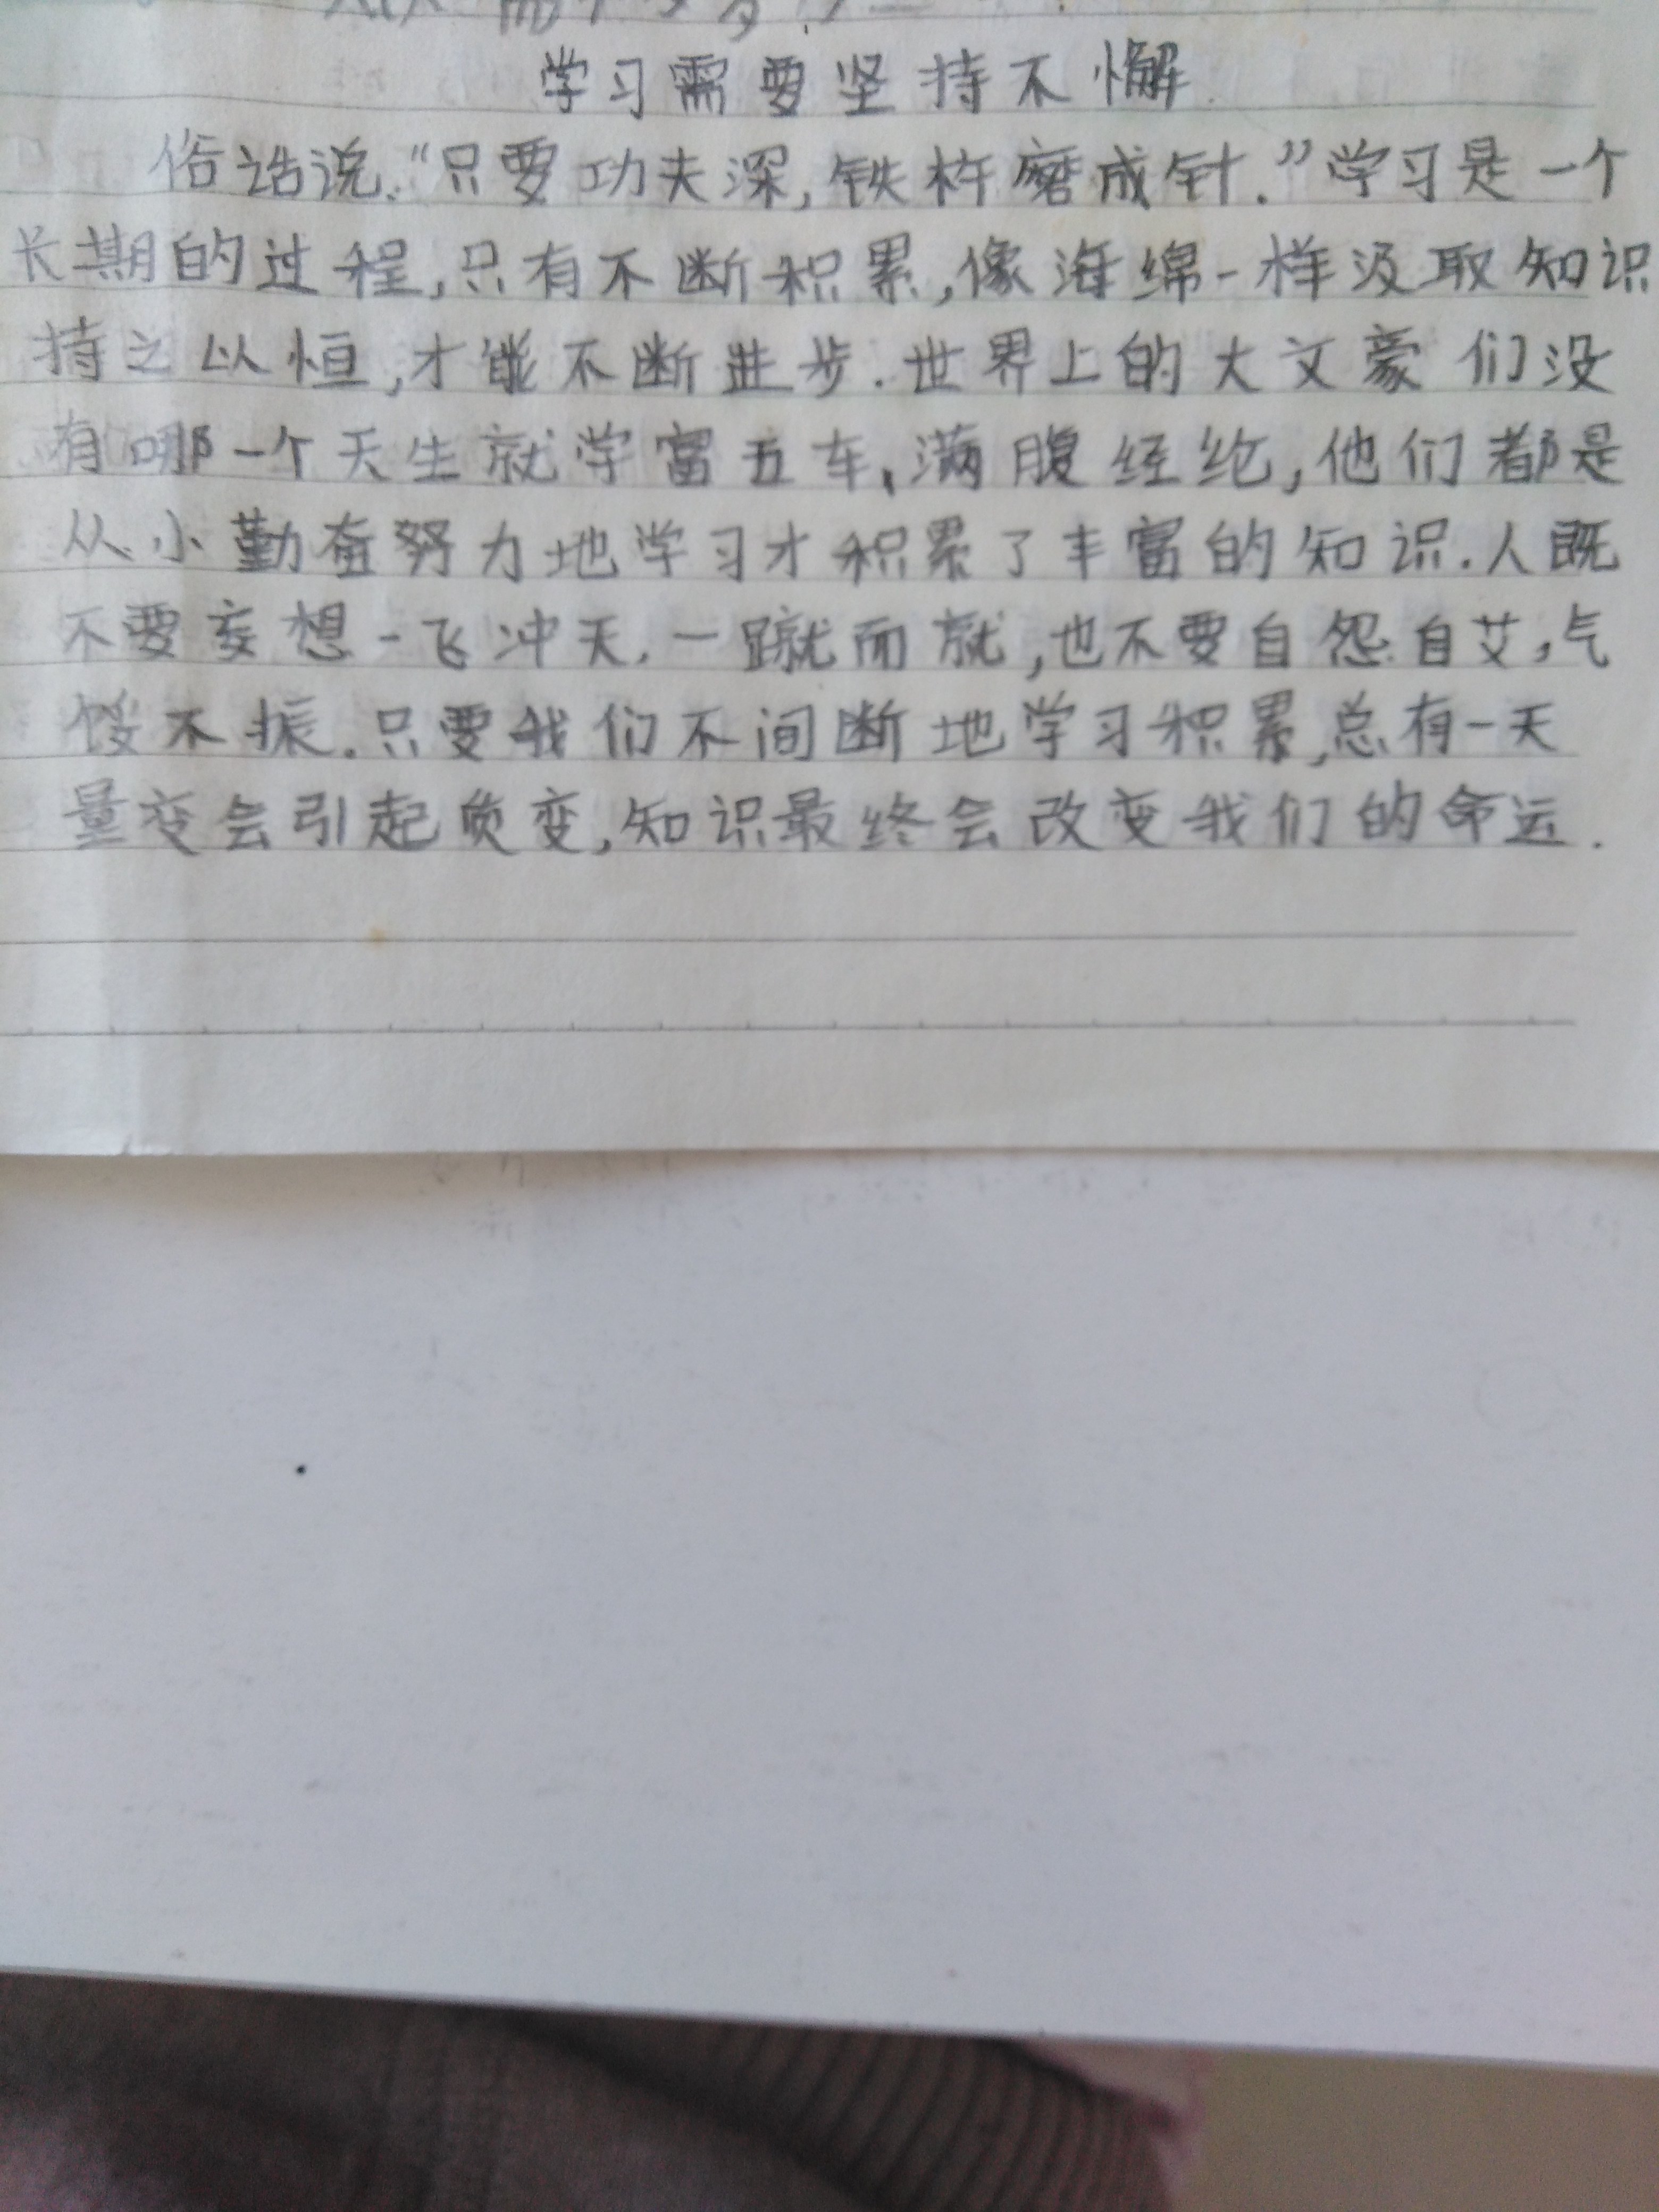 学习需要坚持不懈
俗话说."只要功夫深,铁杵磨成针."学习是一个
长期的过程,只有不断积累,像海绵一样汲取知识
持之以恒,才能不断进步.世界上的大文豪们没
有哪一个天生就学富五车,满腹经纶,他们都是
从小勤奋努力地学习才积累了丰富的知识.人既
不要妄想一飞冲天.一蹴而就,也不要自怨自艾,气
馁不振.只要我们不间断地学习积累,总有一天
量变会引起质变,知识最终会改变我们的命运.